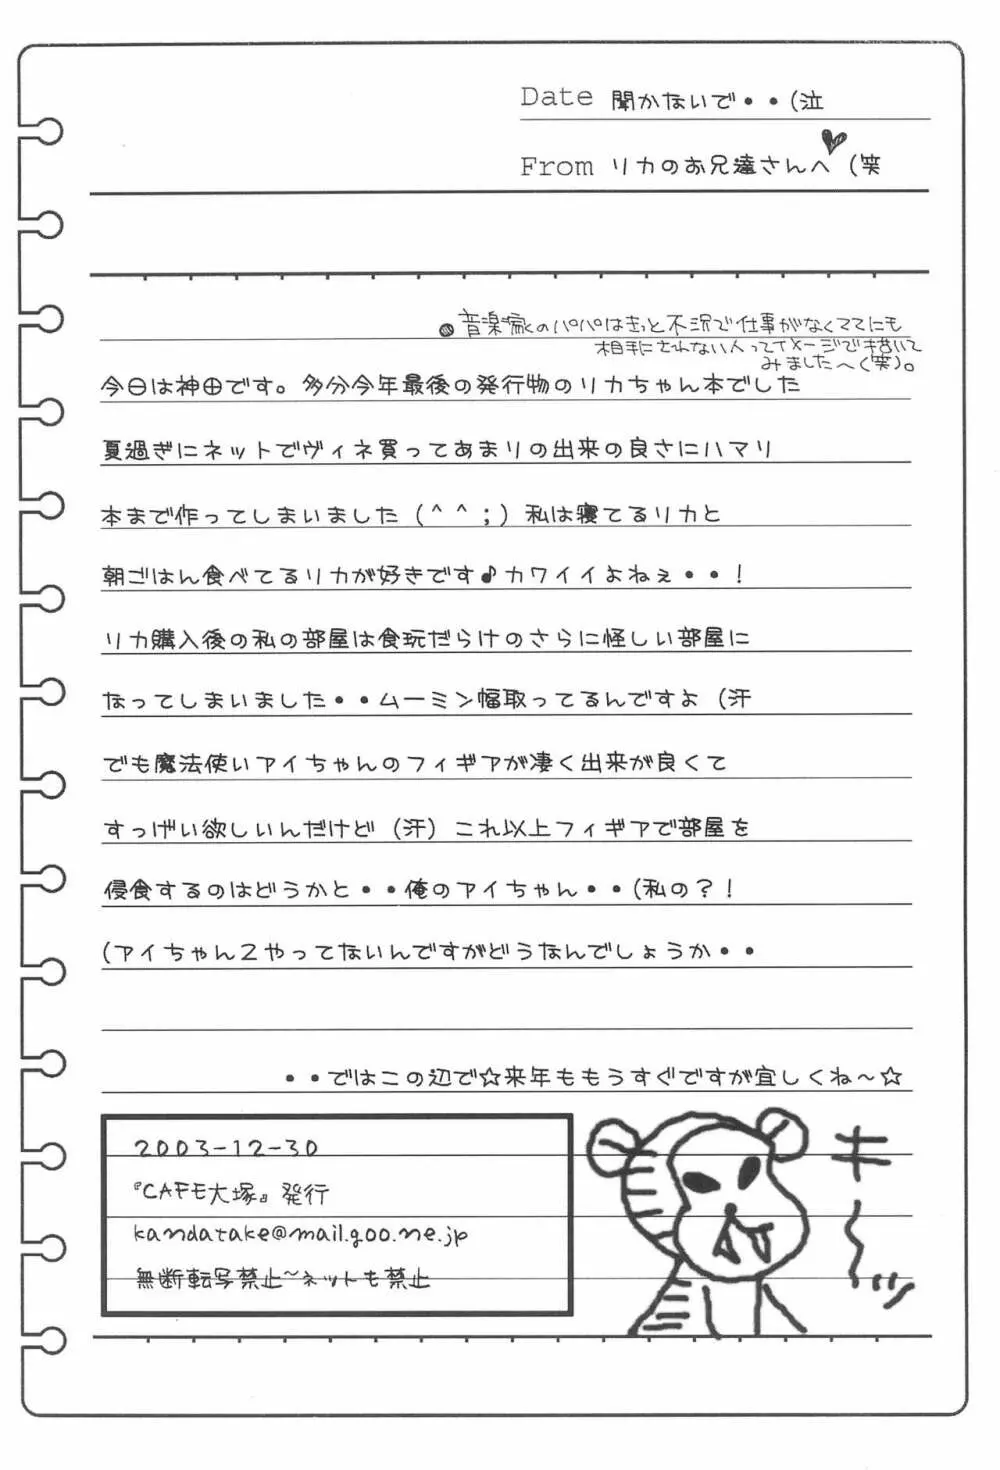 Date 聞かないで・・(泣
From リカのお兄達さんへ (笑
●音楽家のパパはきっと不況で仕事がなくママにも
相手にされない人ってイメージで描いて
みましたへ(笑)。
今日は神田です。多分今年最後の発行物のリカちゃん本でした
夏過ぎにネットでヴィネ買ってあまりの出来の良さにハマリ
本まで作ってしまいました（＾＾；）私は寝てるリカと
朝ごはん食べてるリカが好きです♪カワイイよねぇ・・！
リカ購入後の私の部屋は食玩だらけのさらに怪しい部屋に
なってしまいました・・ムーミン幅取ってるんですよ（汗
でも魔法使いアイちゃんのフィギアが凄く出来が良くて
すっげい欲しいんだけど（汗）これ以上フィギアで部屋を
侵食するのはどうかと・・俺のアイちゃん・・(私の？！
(アイちゃん２やってないんですがどうなんでしょうか・・
・・ではこの辺で☆来年ももうすぐですが宜しくね～☆
2003-12-30
『CAFE大塚』発行
kandatake@mail.goo.ne.jp
無断転写禁止~ネットも禁止
キ～ッ